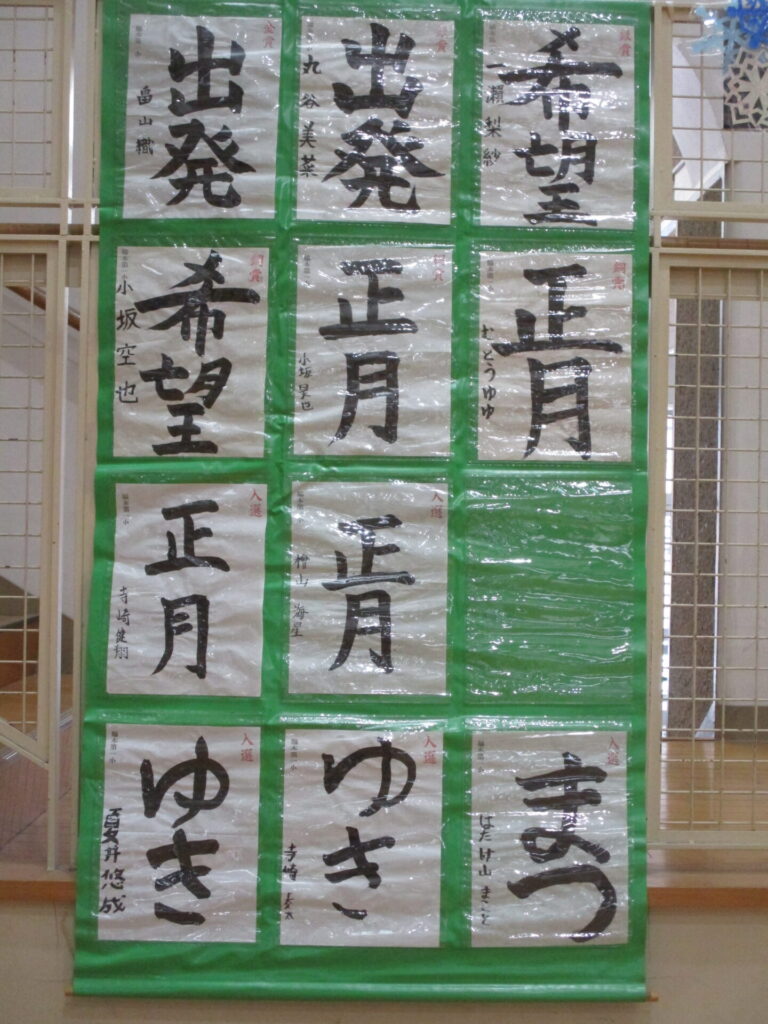 金賞
出発
畠山織
出発
丸谷美菜
銀賞
希望
一瀬梨紗
銅賞
希望
小坂空也
銅賞
正月
小坂
銅賞
正月
むとうゆゆ
入選
正月
寺崎健翔
入選
正月
檜山海星
入選
ゆき
夏井悠成
入選
ゆき
寺崎
入選
まつ
はたけ山まこと